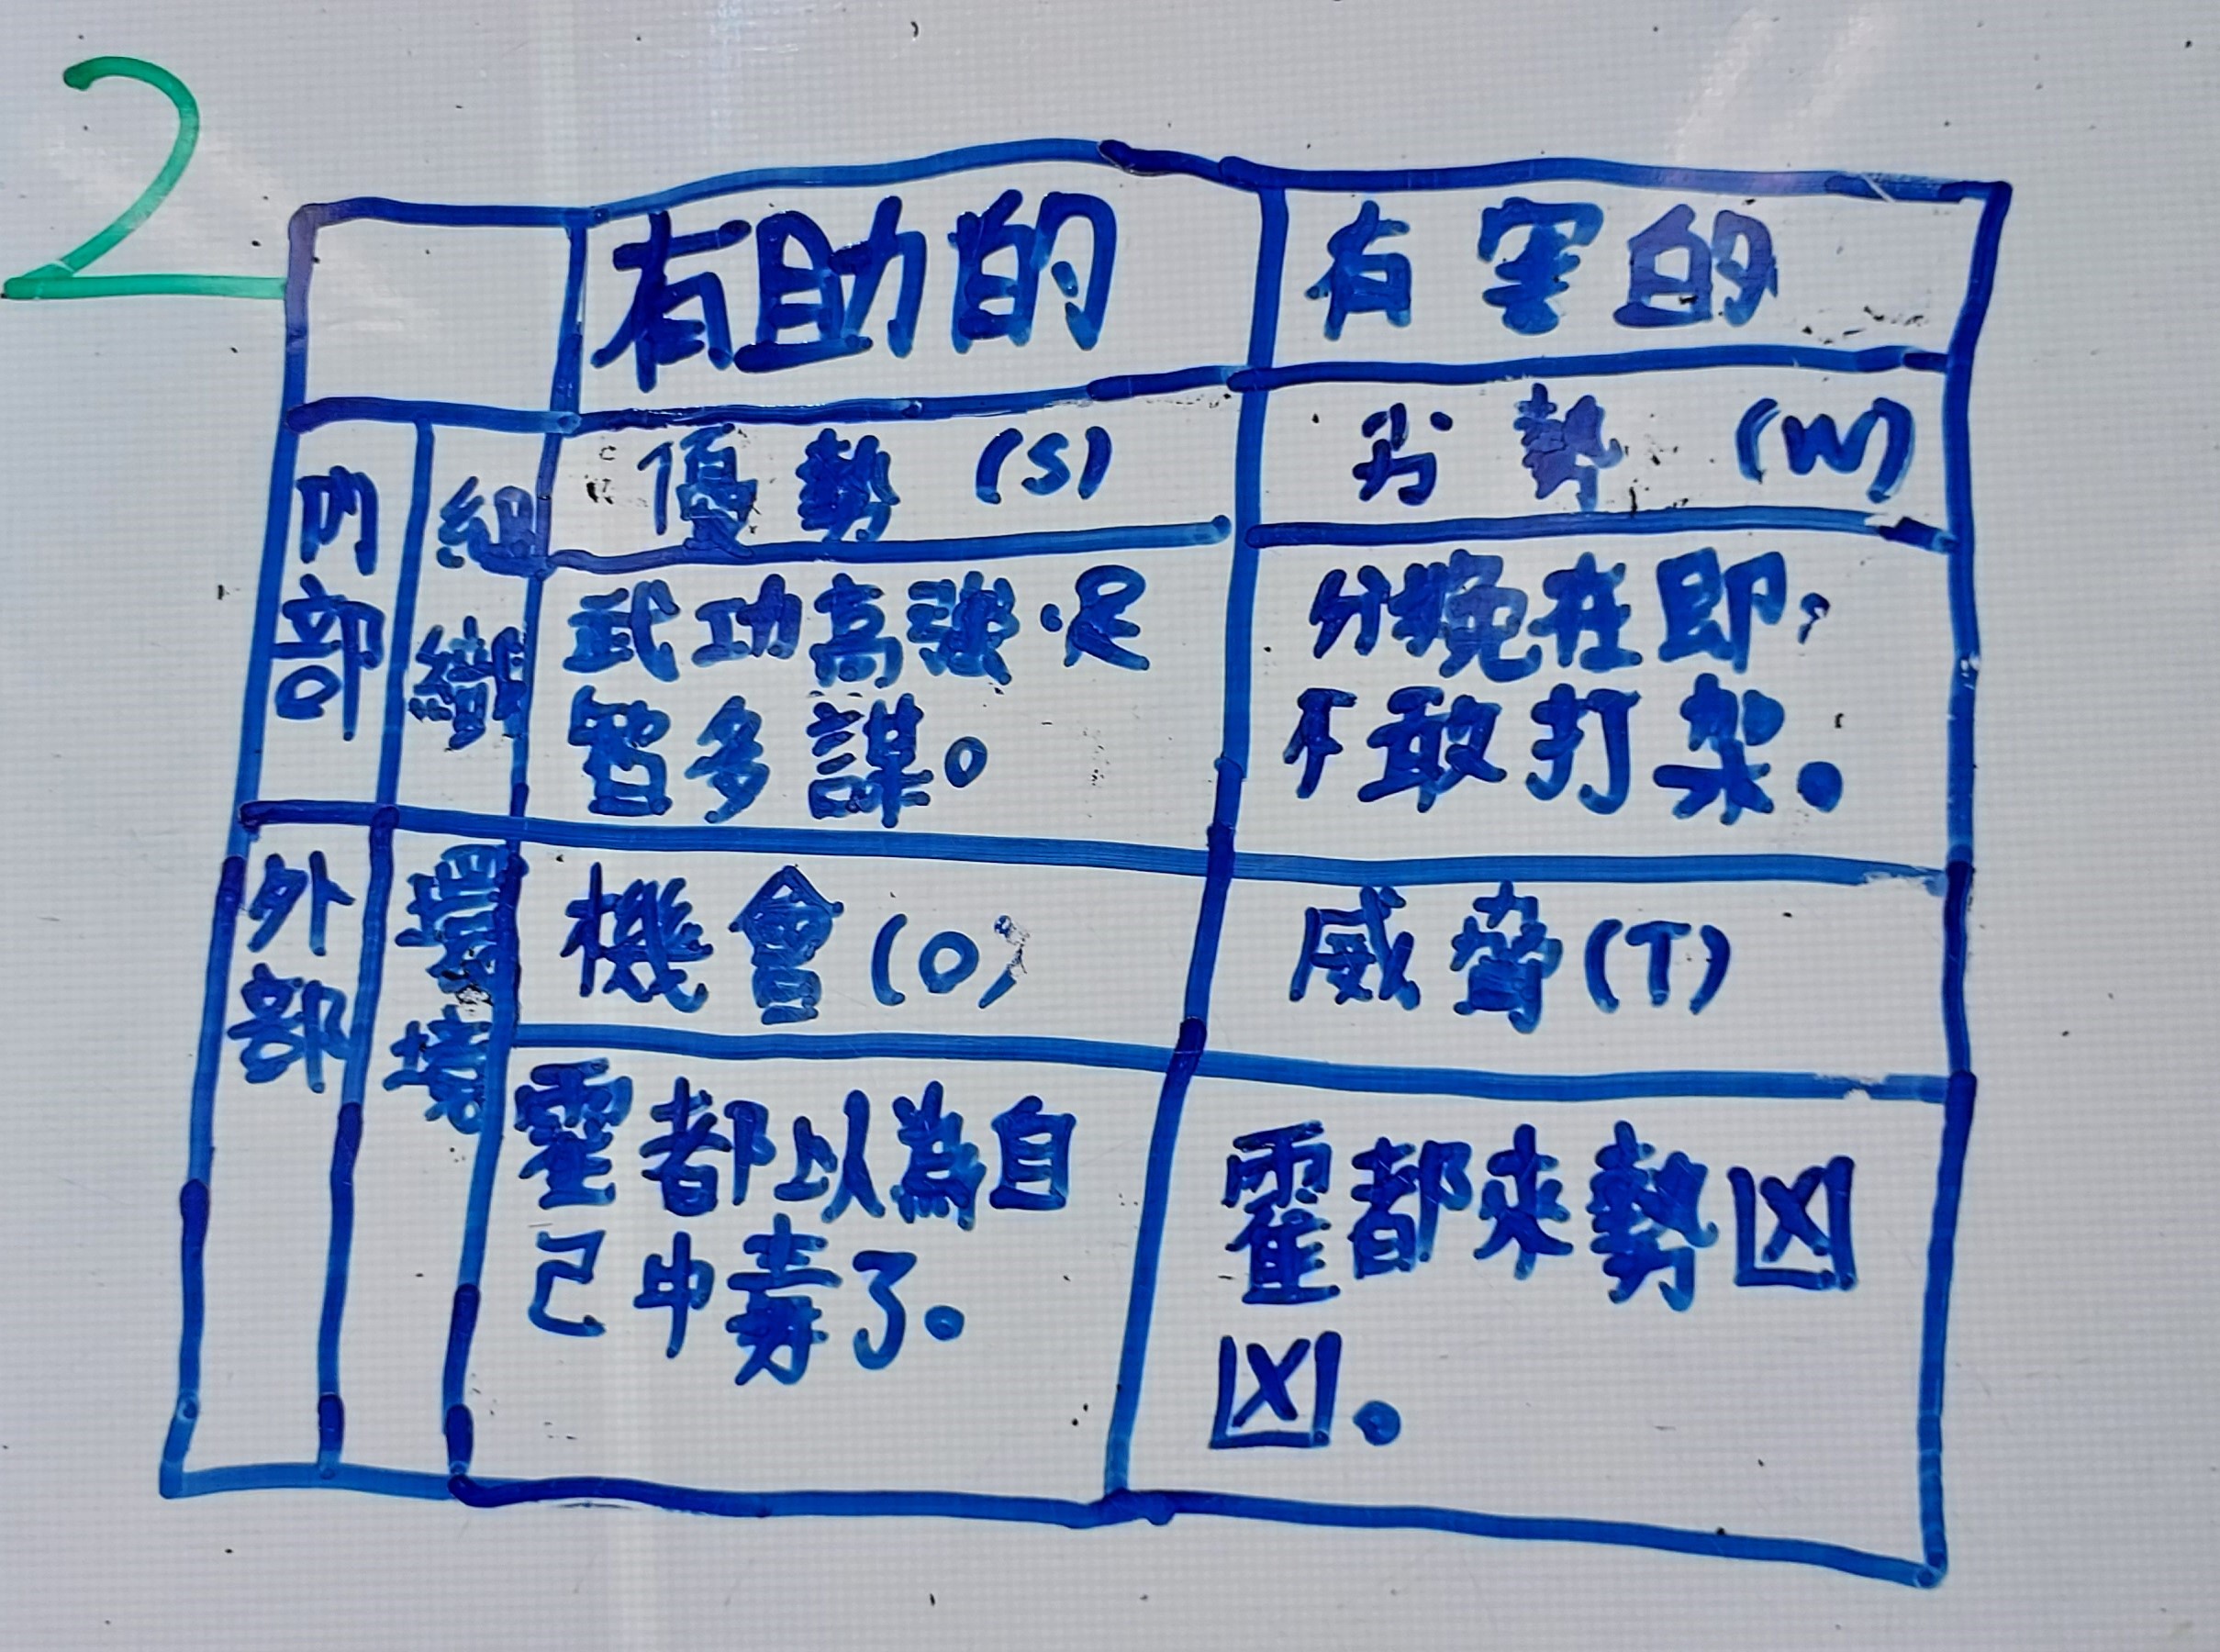 2
有助的
有害的
內部
組織
優勢(S)
劣勢(W)
武功高強,足
智多謀。
分娩在即,
不敢打架。
外部
環境
機會(O)
威脅(T)
霍都以為自
己中毒了。
霍都來勢凶
凶。